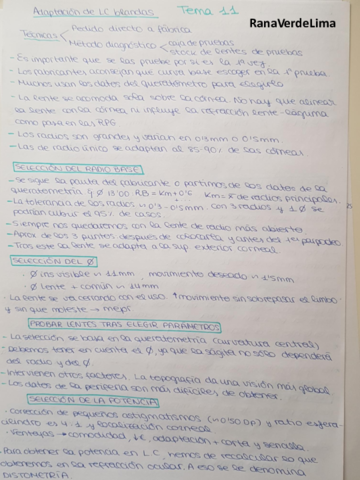 Adaptación de LC blandas Tema 11
RanaVerdeLima
Técnicas Pedido directo a fábrica
Método diagnóstico caja de pruebas
stock de lentes de pruebas
- Es importante que se las pruebe por si es la 1ª vez.
- Los fabricantes aconsejan que curva base escoger en la 1ª prueba
- Muchos usan los datos del queratómetro para escogerla
- La lente se acomoda sola sobre la córnea. No hay que alinear
la lente con la córnea ni incluye la refracción lente-lágrima
como pasa en las RPG
- Los radios son grandes y varían en 0'3mm o 0'5mm
- Las de radio único se adaptan al 85-90% de las córneas.
SELECCIÓN DEL RADIO BASE
- Se sigue la pauta del fabricante o partimos de los datos de la
queratometría y Ø 13'00 RB = Km + 0'5 Km = x̄ de radios principales
- La tolerancia de los radios ~ 0'3-0'5mm. con 3 radios y 1 Ø se
podrían cubrir el 95% de casos.
- Siempre nos quedaremos con la lente de radio más abierto
- Aprox de los 3 puntos después de colocarla y antes del 1er parpadeo
- Tras este la lente se adapta a la sup. exterior corneal
SELECCIÓN DEL Ø
Ø iris visible ~ 11mm, movimiento deseado ~ 1'5mm
Ø lente + común ~ 14mm
- La lente se va cerrando con el uso. ↑ movimiento sin sobrepasar el limbo
y sin que moleste → mejor
PROBAR LENTES TRAS ELEGIR PARÁMETROS
- La selección se basa en la queratometría (curvatura central)
- Debemos tener en cuenta el Ø, ya que la sagita no sólo dependerá
del radio y del Ø.
- Intervienen otros factores. La topografía da una visión más global.
- Los datos de la periferia son más difíciles de obtener.
SELECCIÓN DE LA POTENCIA
- Corrección de pequeños astigmatismos (~ 0'50 Dp) y ratio esfera-
cilindro es 4:1 y localización corneal
- Ventajas → comodidad, ↓€, adaptación + corta y sencilla
- Para obtener la potencia en LC, hemos de recalcular la que
obtenemos en la refracción ocular. A eso se le denomina
DISTOMETRÍA.